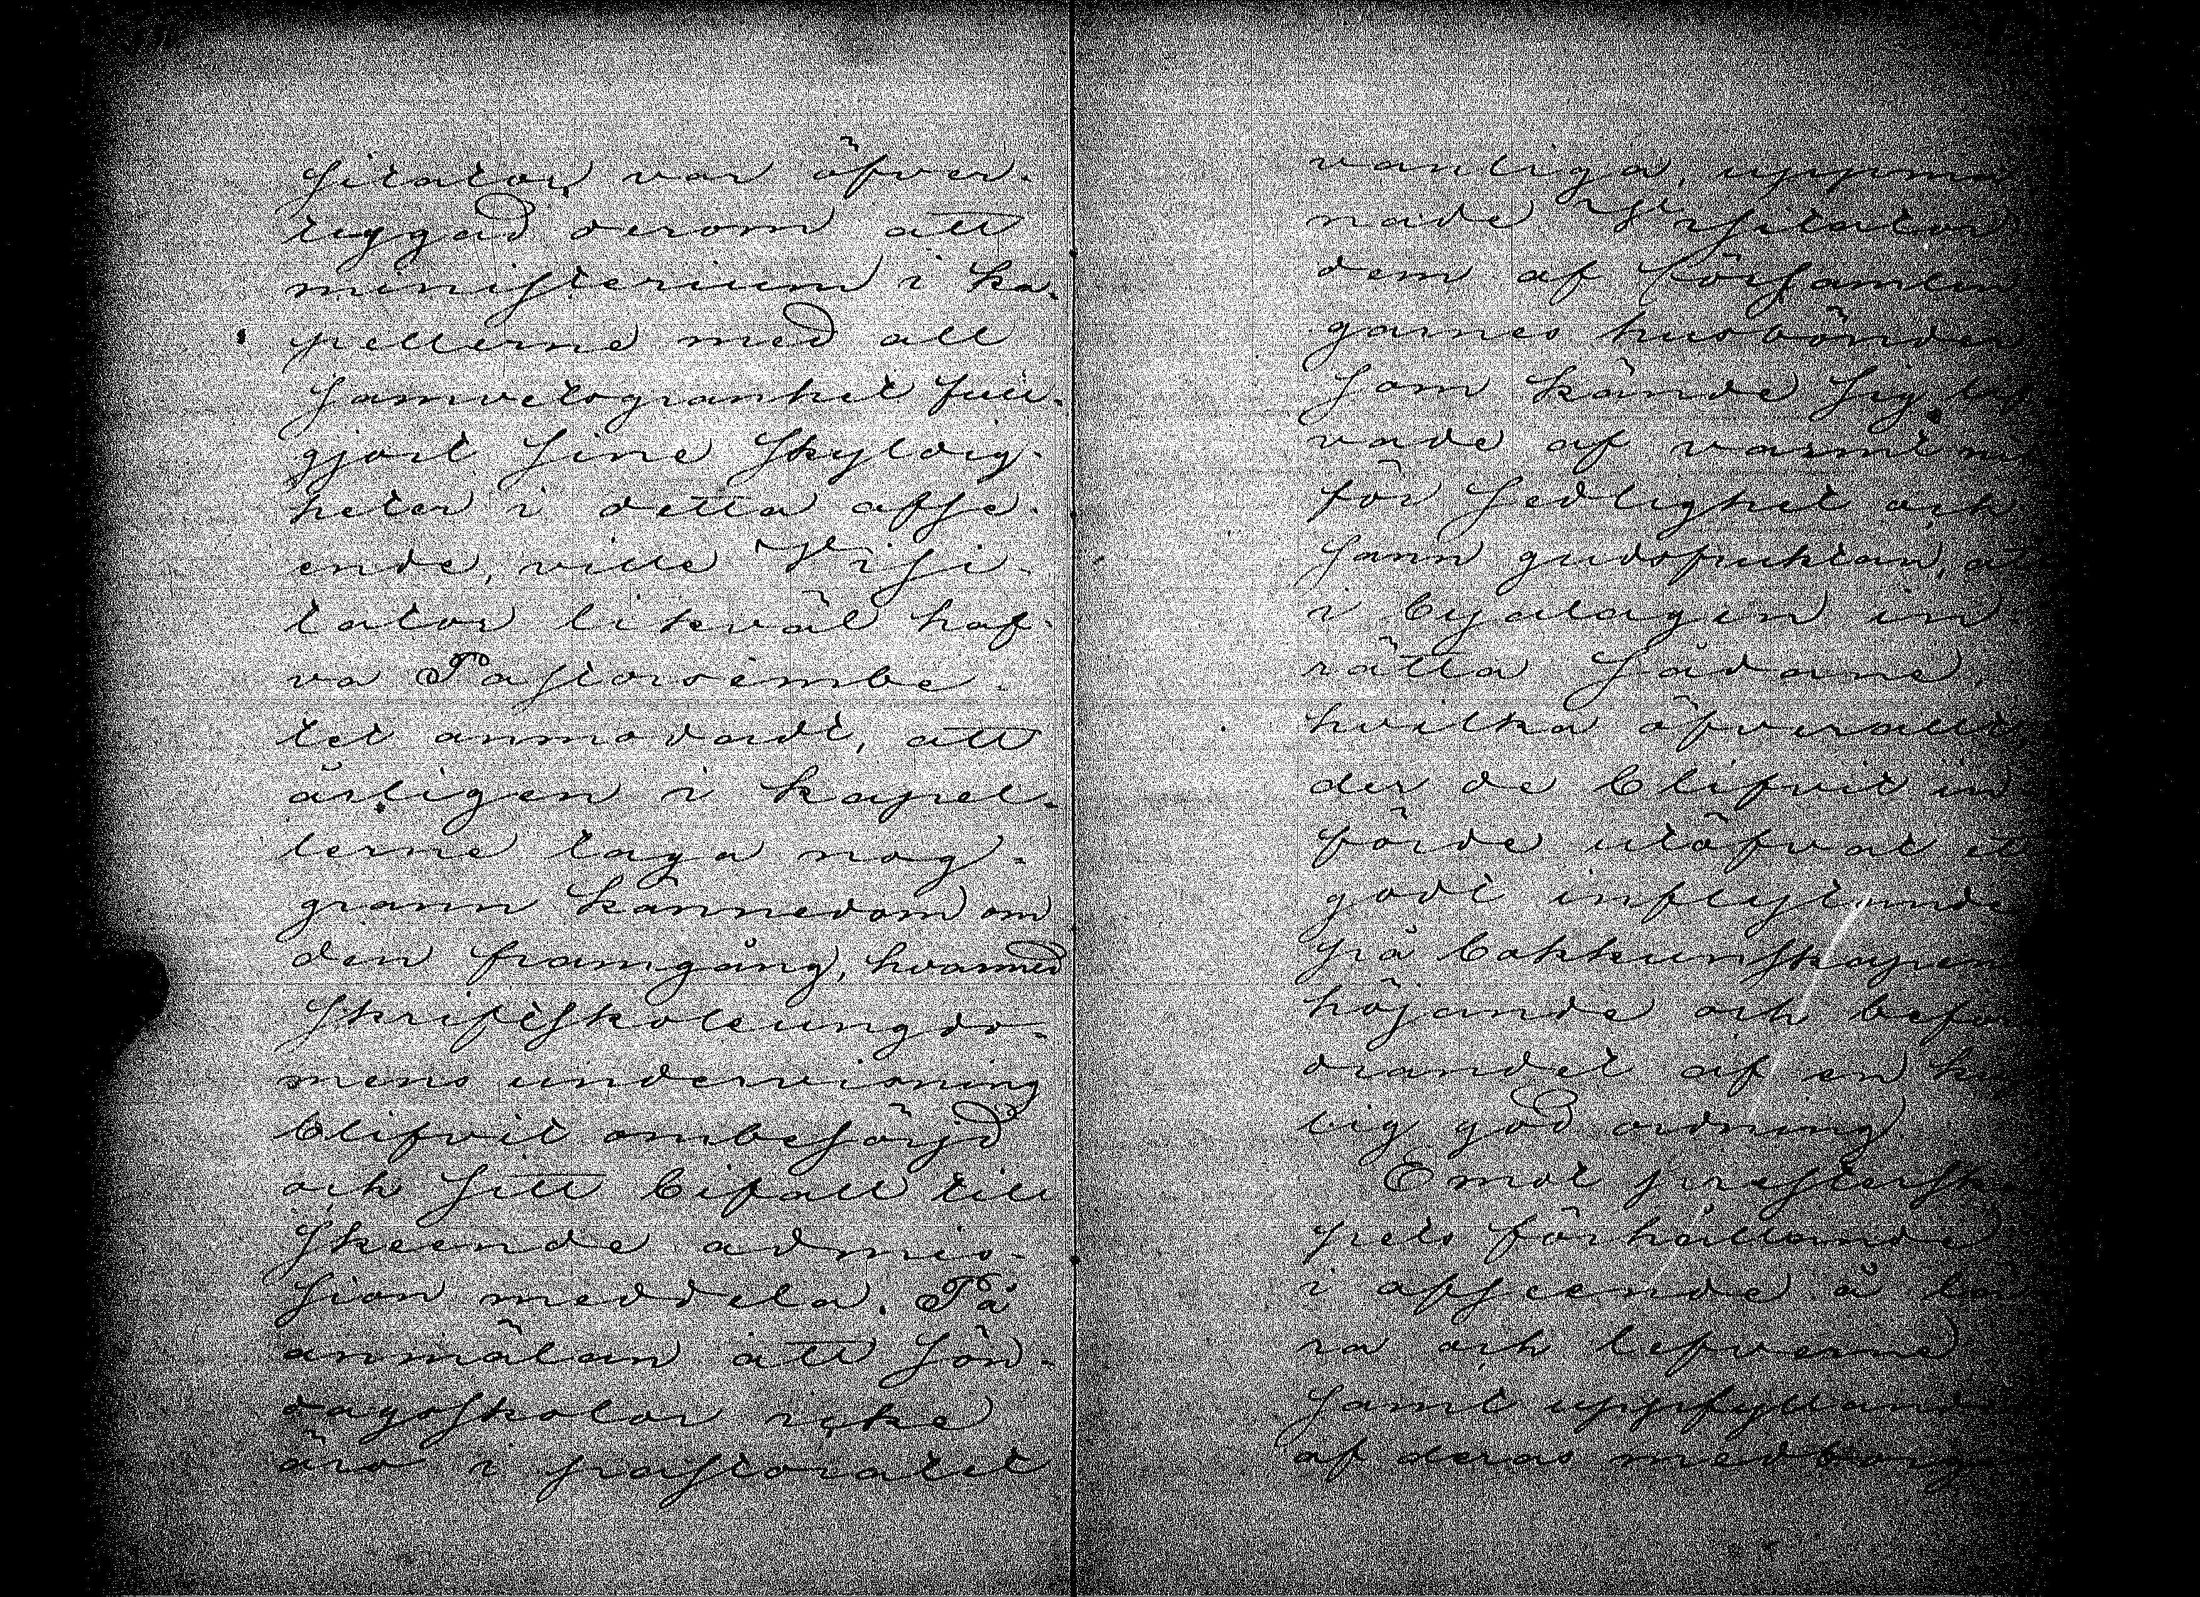 sitator var öfver-
tyggad derom att
ministerium i ka-
pellerne med all
samvetsgranhet full-
gjort sine skyldig-
heter i detta afse-
ende, ville Visi-
tator likväl haf-
va Pastorsembe-
tet anmodadt, att
årligen i kapel-
lerne taga nog-
grann kännedom om
den framgång, hvarmed
skriftskoleungdo-
mens undervisning
blifvit ombesörjd
och sitt bifall till
skeende admis-
sion meddela. På
anmälan att sön-
dagsskolor icke
äro i pastoratet
vanliga, uppma
nade Visitator
dem af församlin
garnes husbönder
som kände sig lif
vade af varmt nit
för sedlighet och
sann gudsfruktan, att
i byalagen in
rätta sådane,
hvilka öfverallt
der de blifvit in
förde utöfvat ett
godt inflytande
på bokkunskapens
höjande och befor
drandet af en hus
lig god ordning.
Emot presterska
pets förhållande
i afseende å lä
ra och lefverne
samt uppfyllande
af deras medborg